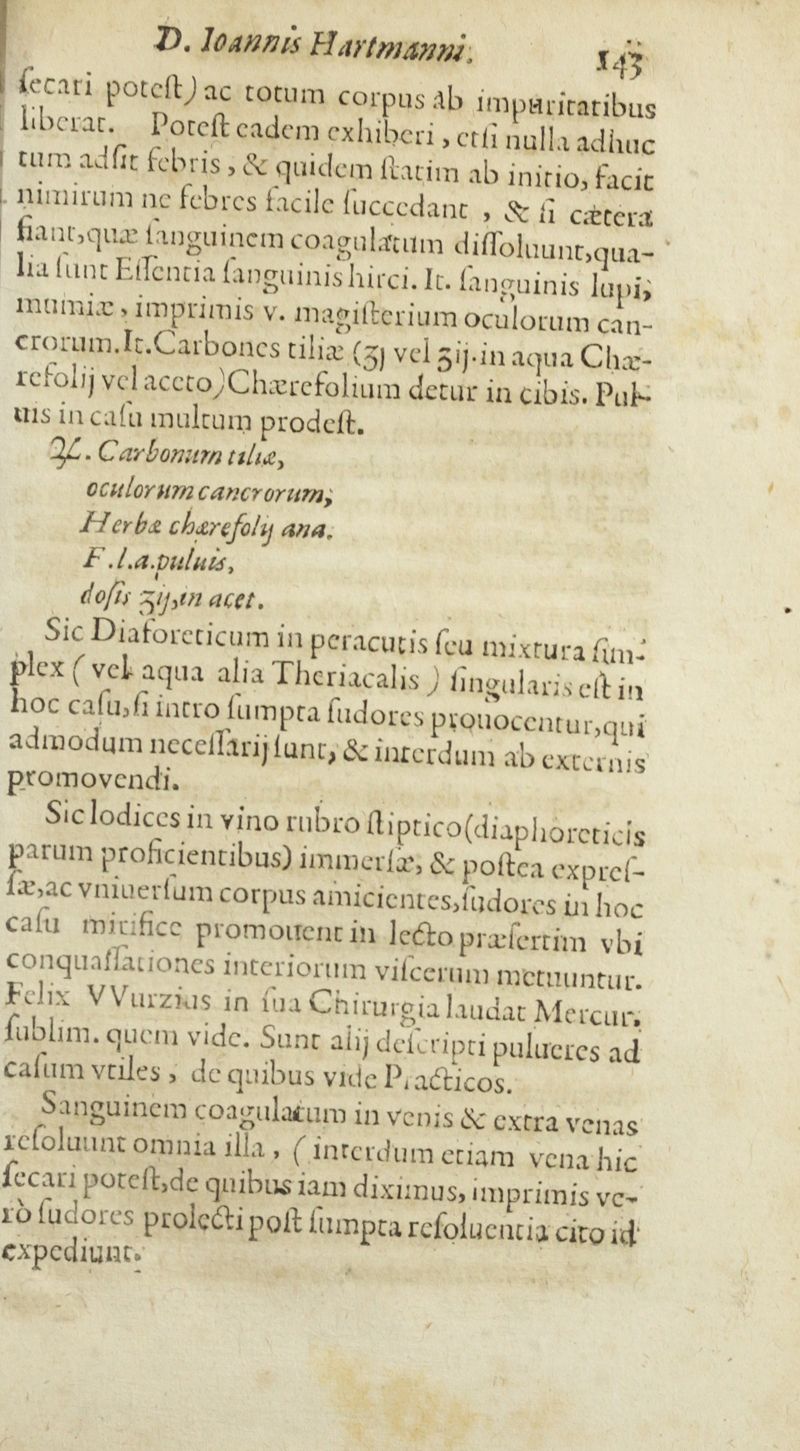 D. Ioannis Hartmanni. 143
ſecari poteſt) ac totum corpus ab impuritatibus
liberat. Poteſt eadem exhiberi, etſi nulla adhuc
tum adſit febris, & quidem ſtatim ab initio, facit
nimirum ne febres facile ſuccedant, & ſi cætera
fiant, quæ ſanguinem coagulatum diſſoluunt, qua-
lia ſunt Eſſentia ſanguinis hirci. It. ſanguinis lupi,
mumiæ, imprimis v. magiſterium oculorum can-
crorum. It. Carbones tiliæ (ʒj vel ʒij. in aqua Chæ-
refolij vel aceto) Chærefolium detur in cibis. Pul-
uis in caſu multum prodeſt.
℞. Carbonum tiliæ,
oculorum cancrorum,
Herbæ chærefolij ana.
F. l. a. puluis,
doſis ʒij, in acet.
Sic Diaforeticum in peracutis ſeu mixtura ſim-
plex (vel aqua alia Theriacalis) ſingularis eſt in
hoc caſu, ſi intro ſumpta ſudores prouocentur, qui
admodum neceſſarij ſunt, & interdum ab externis
promovendi.
Sic lodices in vino rubro ſtiptico (diaphoreticis
parum proficientibus) immerſæ, & poſtea expreſ-
ſæ, ac vniuerſum corpus amicientes, ſudores in hoc
caſu mirifice promouent in lecto præſertim vbi
conquaſſationes interiorum viſcerum metuuntur.
Felix VVurzius in ſua Chirurgia laudat Mercur.
ſublim. quem vide. Sunt alij deſcripti pulueres ad
caſum vtiles, de quibus vide Practicos.
Sanguinem coagulatum in venis & extra venas
reſoluunt omnia illa, (interdum etiam vena hic
ſecari poteſt, de quibus iam diximus, imprimis ve-
rò ſudores prolecti poſt ſumpta reſoluentia cito id
expediunt.